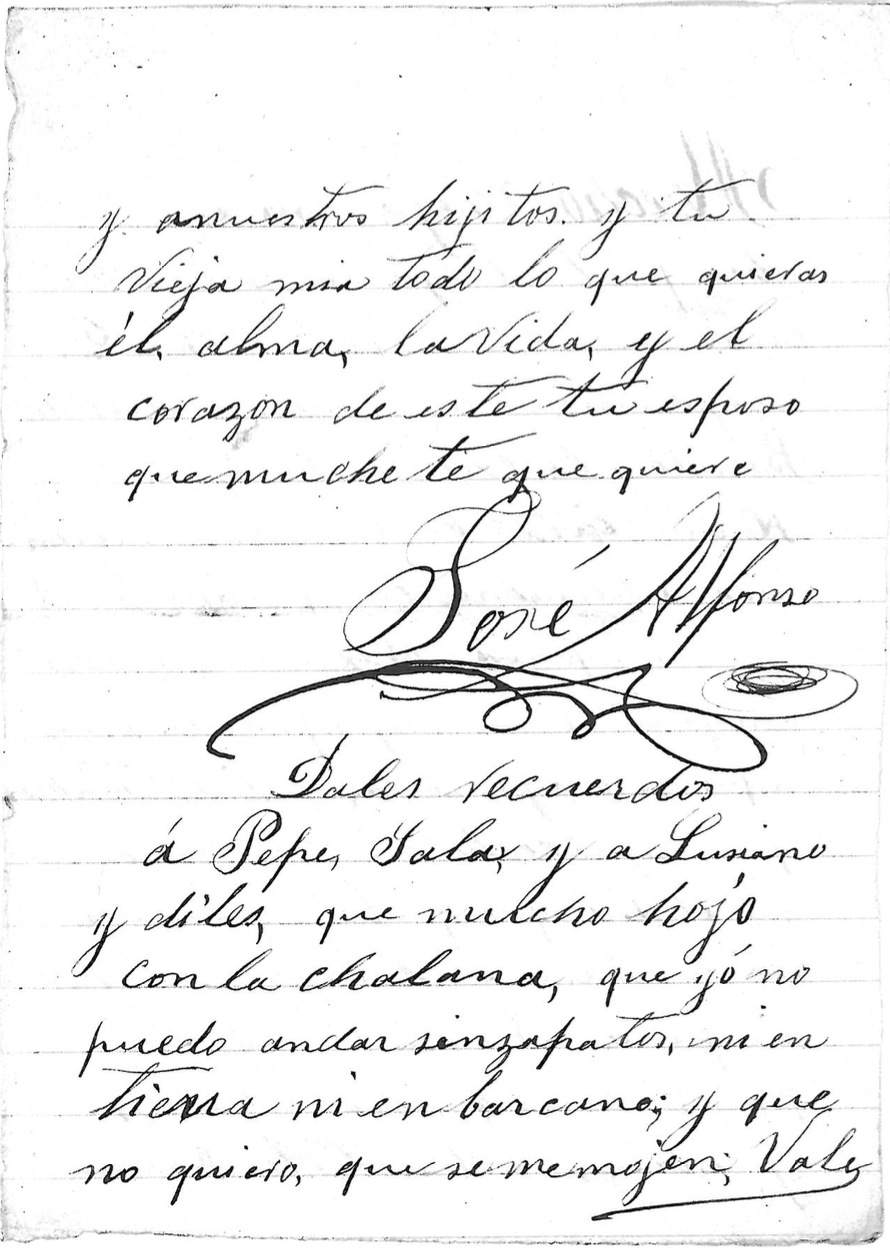 y anuestros hijitos. y tu
Vieja mia todo lo que quieras
él, alma, la Vida, y el
corazon de este tu esposo
que muche te que quiere
José Alfonso
Dales recuerdos
á Pepe, y a Lusiano
y diles, que mucho hojo
con la chalana, que yó no
puedo andar sinzapatos, ni en
tierra ni en barcano; y que
no quiero, que sememojen; Vale